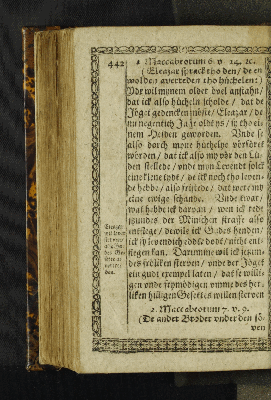 442
2 Maccabeorum 6. v 24. 2c.
(Eleazar sprack tho den / de en
wolden averreden tho hüchelen:)
Vdt wil mynem older övel anstahn /
dat ick also hücheln scholde / dat de
Jöget gedencken möste / Eleazar / de
nu negentich Jahr oldt ys / ys tho ei-
nem Heiden geworden. Vnde se
also dorch myne hüchelye vörföret
wörden / dat ick also my vör den Lü-
den stellede / vnde myn Levendt solck
eine klene tydt / de ick noch tho leven-
de hebbe / also fristede / dat were my
eine ewige schande. Vnde twar /
wat hebbe ick darvan / wen ick rede
jtzundes der Minschen straffe also
entflege / dewile ick Gades henden /
ick sy levendich edder dodt / nicht ent-
flegen kan. Darumme wil ick jtzun-
des frölick sterven / vnde der Jöget
ein gudt exempel laten / dat se willi-
gen vnde frymödigen vmme des her-
liken hilligen Gesettes willen sterven
2. Maccabeorum 7. v. 9.
(De ander Broder vnder den sö-
ven